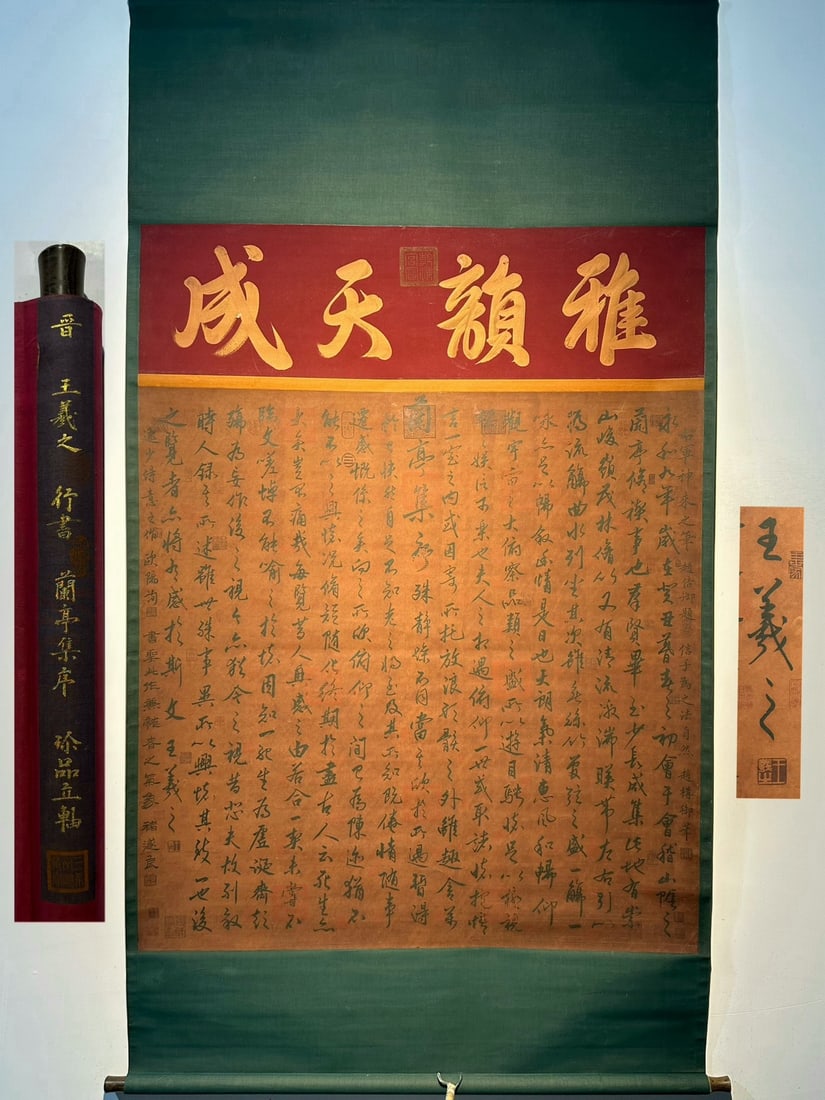 雅韻天成
右軍神來之筆 趙佶御題 信手為之法自然 趙構御筆
永和九年歲在癸丑暮春之初會于會稽山陰之
蘭亭脩禊事也羣賢畢至少長咸集此地有崇
山峻嶺茂林脩竹又有清流激湍映帶左右引以
為流觴曲水列坐其次雖無絲竹管弦之盛一觴一
詠亦足以暢敘幽情是日也天朗氣清惠風和暢仰
觀宇宙之大俯察品類之盛所以遊目騁懷足以極視
娛信可樂也夫人之相遇俯仰一世或取諸懷抱悟
言一室之內或因寄所托放浪形骸之外雖趣舍萬
蘭亭集序 殊靜躁不同當其欣於所遇暫得
於己快然自足不知老之將至及其所知既倦情隨事
遷感慨係之矣向之所欣俯仰之間已為陳迹猶不
能不以之興懷況脩短隨化終期於盡古人云死生亦
大矣豈不痛哉每覽昔人興感之由若合一契未嘗不
臨文嗟悼不能喻之於懷固知一死生為虛誕齊彭
殤為妄作後之視今亦猶今之視昔悲夫故列敘
時人錄其所述雖世殊事異所以興懷其致一也後
之覽者亦將有感於斯文 王羲之
逸少特意之 歐陽詢 書聖此作兼 秀之氣 褚遂良
晉 王羲之 行書 蘭亭集序 珍品立軸
王羲之